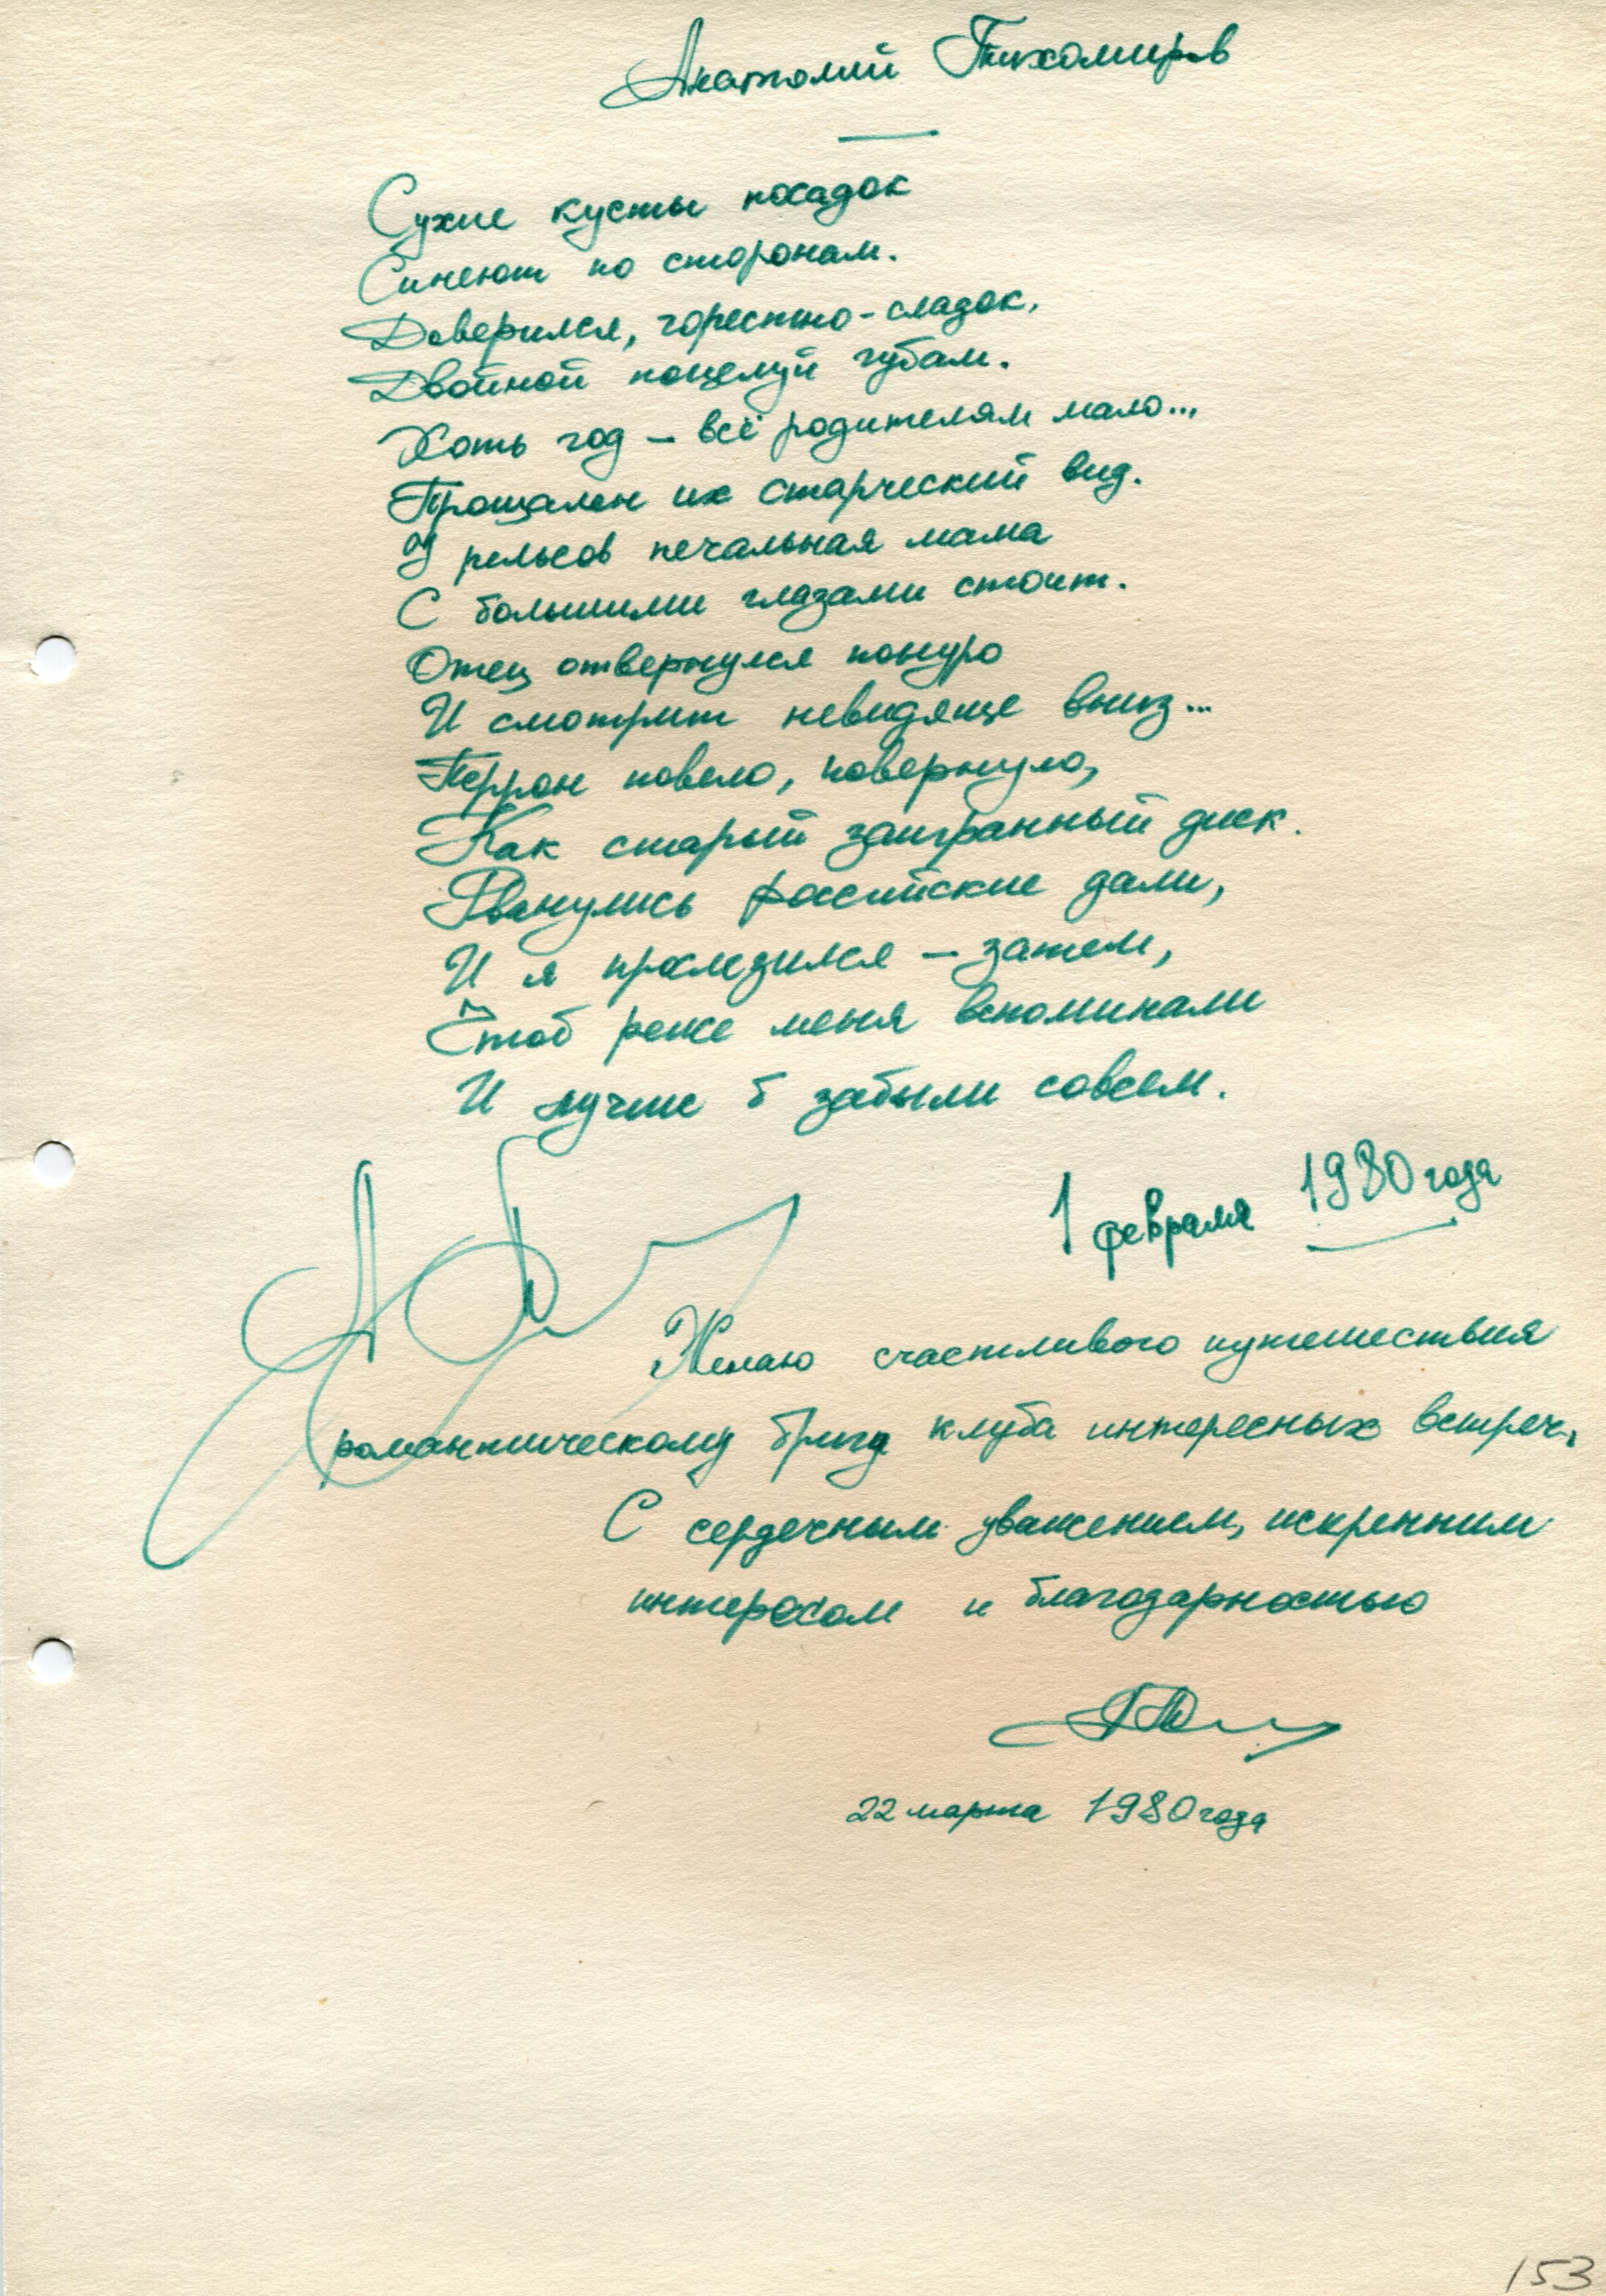 Анатолий Тихомиров
Сухие кусты посадок
Синеют по сторонам.
Доверился, горестно-сладок,
Двойной поцелуй губам.
Хоть год – всё родителям мало...
Прощален их старческий вид.
У рельсов печальная мама
С большими глазами стоит.
Отец отвернулся понуро
И смотрит невидяще вниз...
Перрон повело, повернуло,
Как старый заигранный диск.
Рванулись российские дали,
И я прослезился – затем,
Чтоб реже меня вспоминали
И лучше б забыли совсем.
1 февраля 1980 года
Желаю счастливого путешествия
романтическому бригу клуба интересных встреч.
С сердечным уважением, искренним
интересом и благодарностью
22 марта 1980 года
153